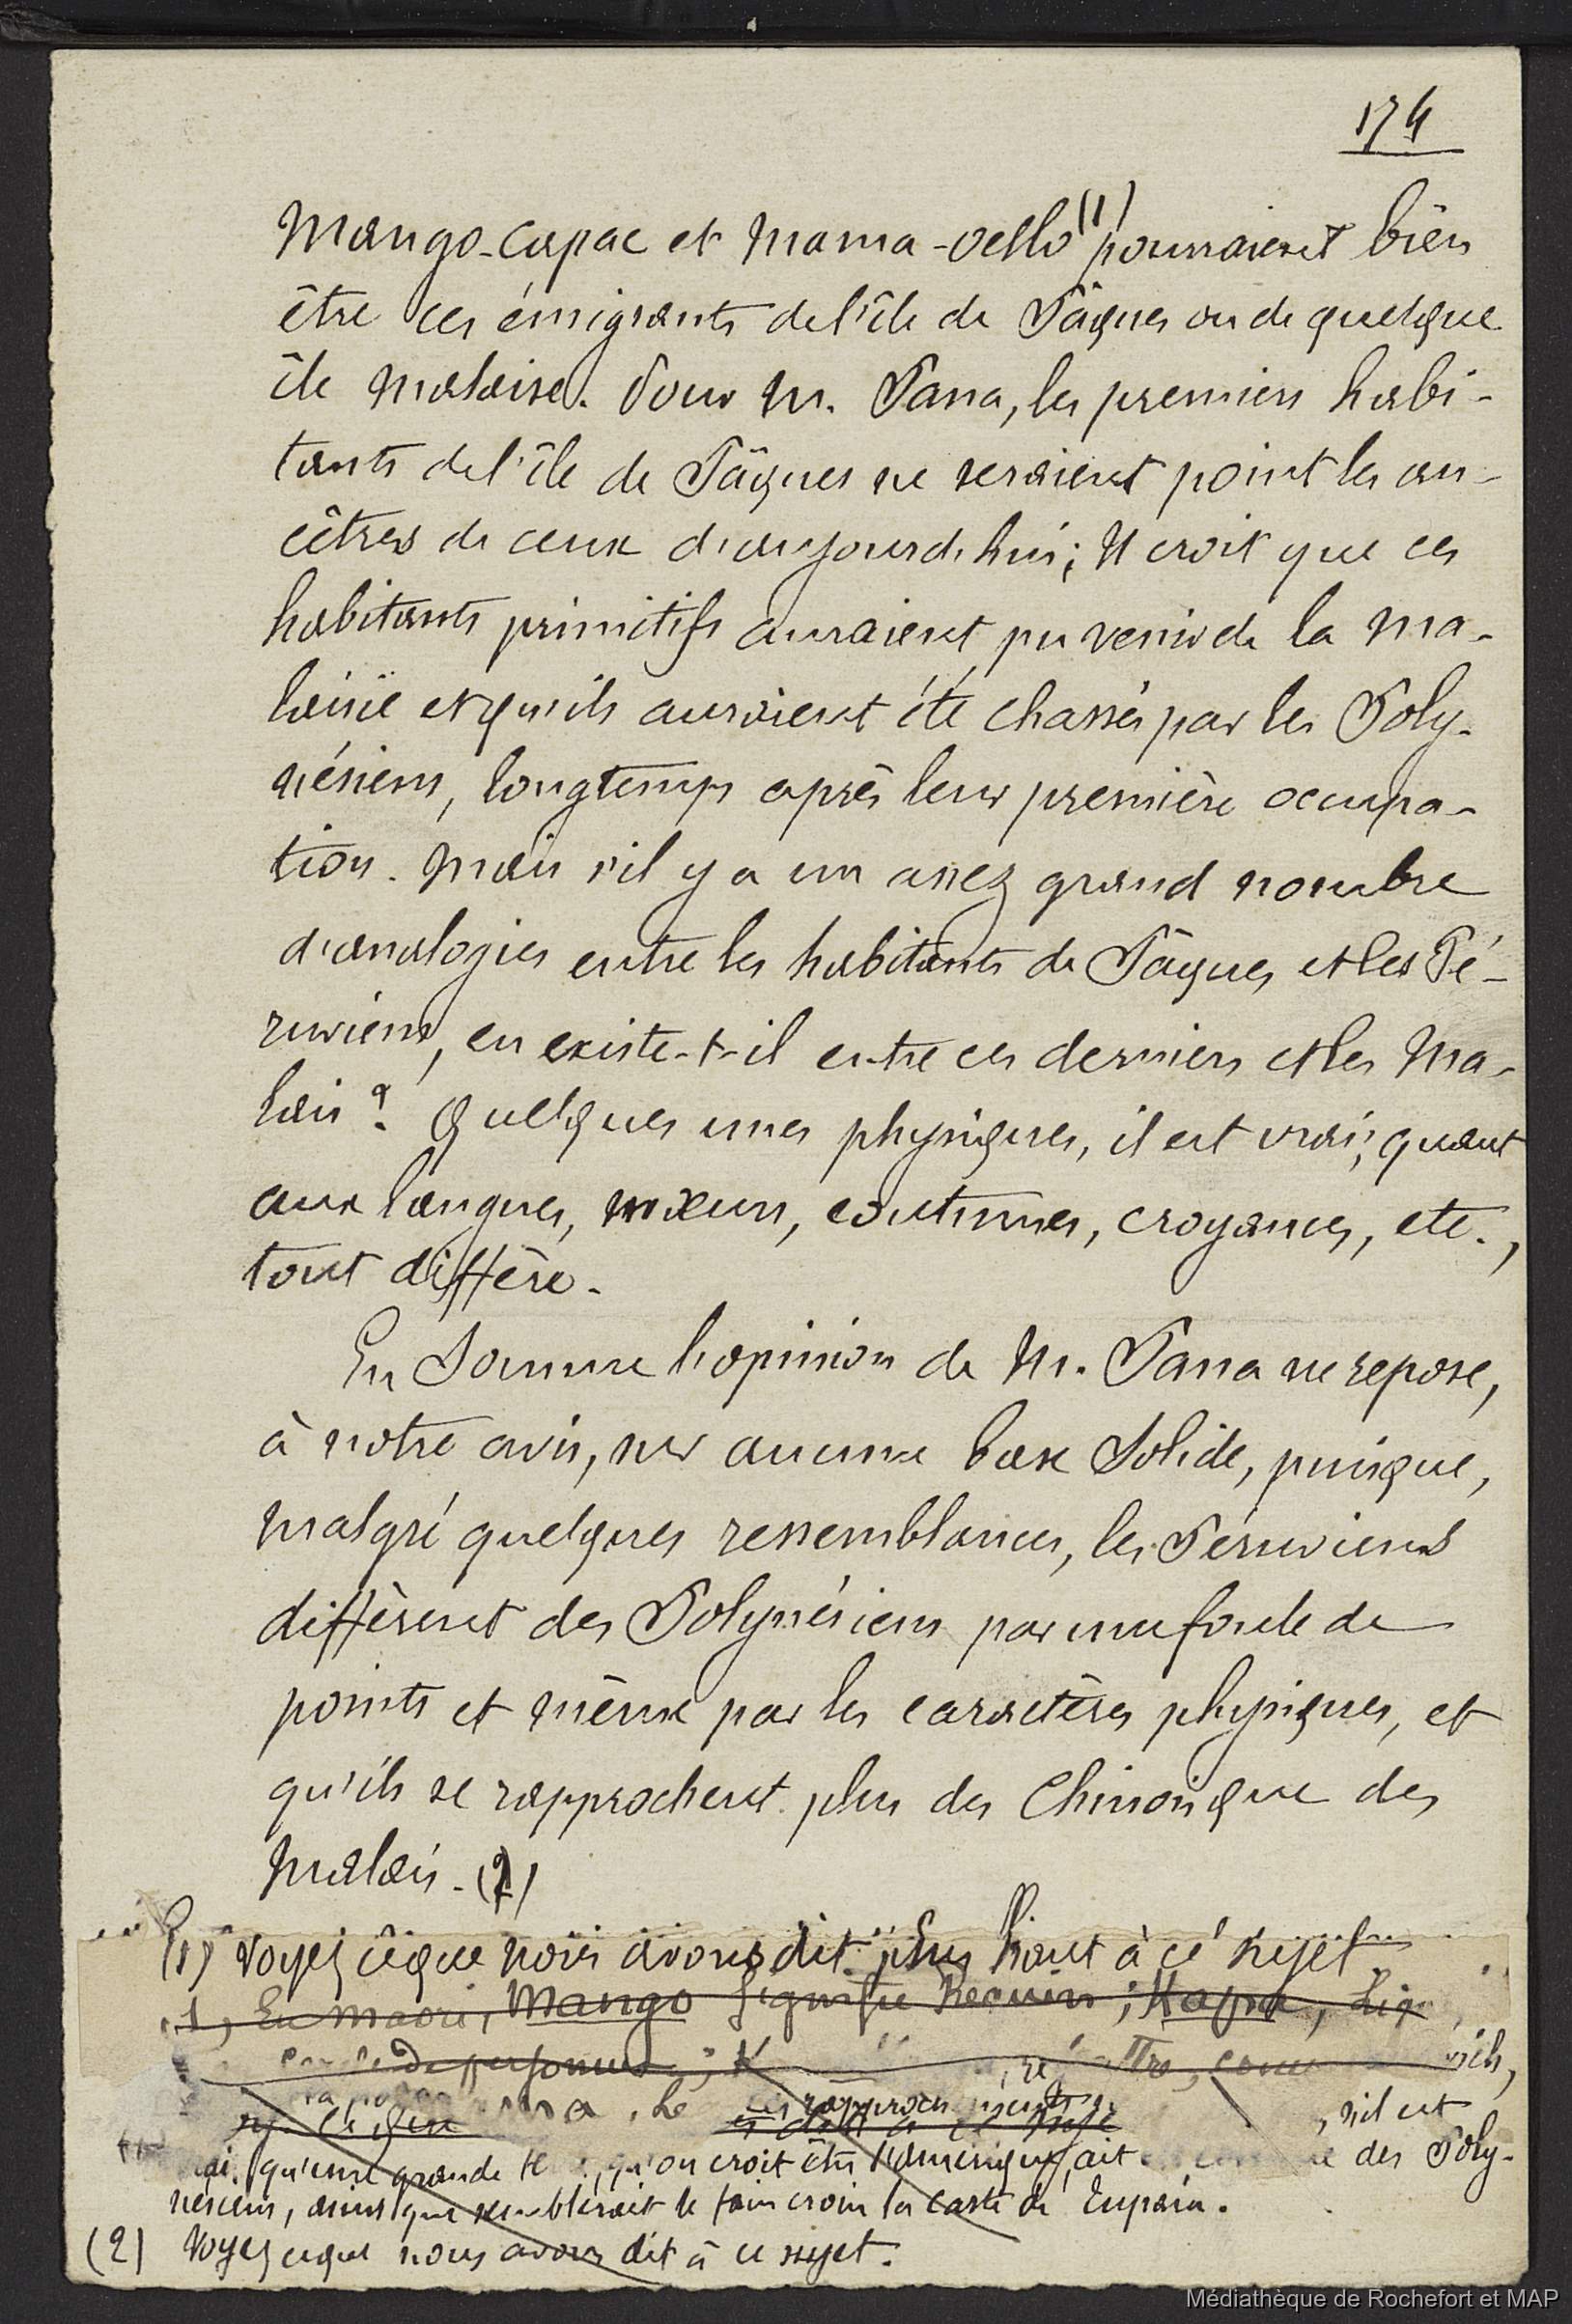 174
Mango-Capac et Mama-Oello (1) pourraient bien
être ces émigrants de l'île de Pâques ou de quelque
île malaise. Pour M. Pana, les premiers habi-
tants de l'île de Pâques ne seraient point les an-
cêtres de ceux d'aujourd'hui; Il croit que ces
habitants primitifs auraient pu venir de la Ma-
laisie et qu'ils auraient été chassés par les Poly-
nésiens, longtemps après leur première occupa-
tion. Mais s'il y a un assez grand nombre
d'analogies entre les habitants de Pâques et les Pé-
ruviens, en existe-t-il entre ces derniers et les Ma-
lais? Quelques unes physiques, il est vrai; quant
aux langues, mœurs, coutumes, croyances, etc.,
tout diffère.
En Somme l'opinion de M. Pana ne repose,
à notre avis, sur aucune base Solide, puisque,
malgré quelques ressemblances, les Péruviens
diffèrent des Polynésiens par une foule de
points et même par les caractères physiques, et
qu'ils se rapprochent plus des Chinois que des
Malais. (2)
(1) Voyez ce que nous avons dit plus haut à ce sujet
1) En Maori, Mango signifie Requin; Kapa,
de personnes;
rapproch
s'il est
qu'une grande qu'on croit être l'Amérique, ait des Poly-
nésiens, ainsi que semblerait le faire croire la carte de Tupaïa.
(2) Voyez ce que nous avons dit à ce sujet.
Médiathèque de Rochefort et MAP